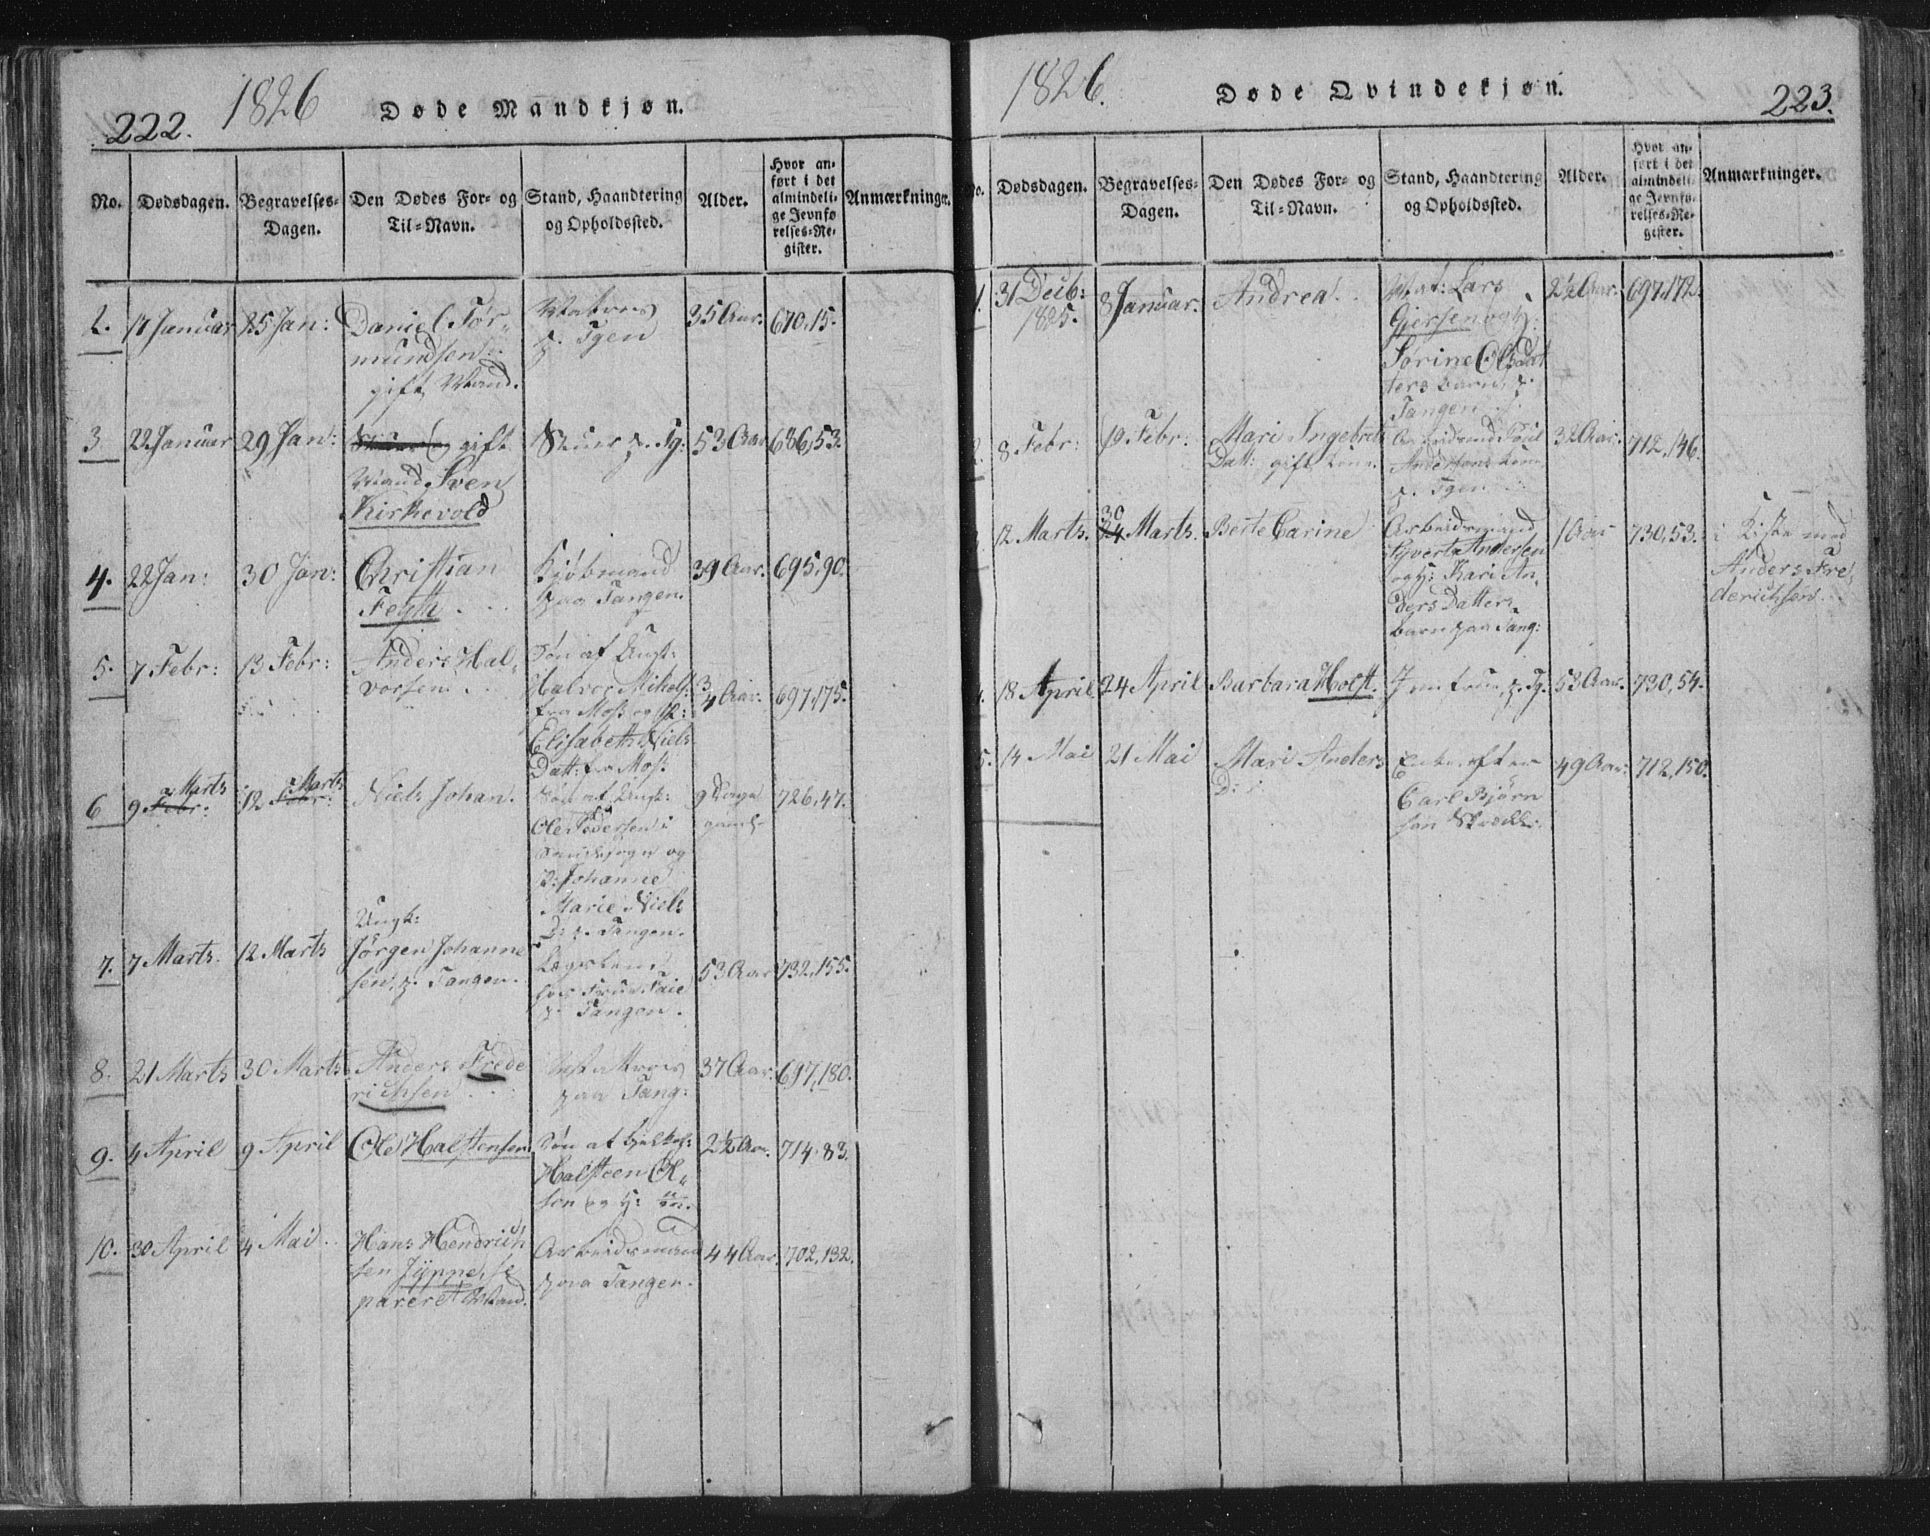 222.
1826
Døde Mandkjøn.
No.
Dødsdagen.
Begravelses-
Dagen.
Den Dødes For- og
Til-Navn.
Stand, Haandtering
og Opholdssted.
Alder.
Hvor an-
ført i det
almindeli-
ge Jevnfø
relses-Re-
gister.
Anmærkninger.
2.
17 Januar
25 Jan:
Daniel Tør-
mundsen
gift Mand.
Matros
p. Tgen
35 Aar.
670, 15.
3
22 Januar
29 Jan:
gift
Mand Sven
Kirkevold
p. Tg:
53 Aar
686, 53.
4.
22 Jan:
30 Jan:
Christian
Feyth
Kjøbmand
paa Tangen.
39 Aar.
695, 90.
5.
7 Febr:
13 Febr:
Anders Hal-
vorsen
Søn af Ungk:
Halvor Mikels:
fra Moss og
Elisabeth Niels
Datt: fra Moss
3/4 Aar.
697, 175.
6
9 Febr: Marts
12 Febr: Marts
Niels Johan.
Søn af Ungk:
Ole Pedersen i
og
P: Johanne
Marie Niels
D: p. Tangen.
9 Dage
gaml.
726, 47.
7.
7 Marts.
12 Marts
Ungk:
Jørgen Johanne
sen, p. Tangen.
Lægslem
hos
p. Tangen.
53 Aar
732, 155.
8.
21 Marts
30 Marts
Anders Frede
richsen
Matros
paa Tang:
37 Aar.
697, 180.
9.
4 April
9 April
Ole Halstensen
Søn af
Halsteen Ol-
sen og H:
2½ Aar.
714, 83.
10.
30 April
4 Mai
Hans Hendrich
sen Jyppe, se
pareret Mand.
Arbeidsmand
paa Tangen.
44 Aar.
702, 132.
1826.
Døde Qvindekjøn.
223.
No.
Dødsdagen.
Begravelses-
Dagen.
Den Dødes For- og
Til-Navn.
Stand, Haandtering
og Opholdssted.
Alder.
Hvor an-
ført i det
almindeli-
ge Jevnfø-
relses-Re-
gister.
Anmærkninger.
1.
31 Decb:
1825.
8 Januar.
Andrea
Mat: Lars
Gjersen og H:
Sørine Olsdat
ters barn p.
Tangen
2½ Aar.
697, 172.
2.
8 Febr:
19 Febr:
Mari Ingebrets
Datt: gift Kone
Arbeidsmand
Andersens Kone
p. Tgen
32 Aar.
712, 146.
3.
12 Marts.
30
24 Marts.
Berte Carine
Arbeidsmand
Syvert Andersen
og H: Kari An-
ders Datters
barn paa Tang:
1 Aar
730, 53.
i Kiste med
Anders Fre-
derichsen
4.
18 April
24 April
Barbara Holst.
Jomfrue, p. Tg:
53 Aar.
730, 54.
5.
14 Mai
21 Mai
Mari Anders
D:
Enke efter
Carl Bjørn
sen
49 Aar.
712, 150.